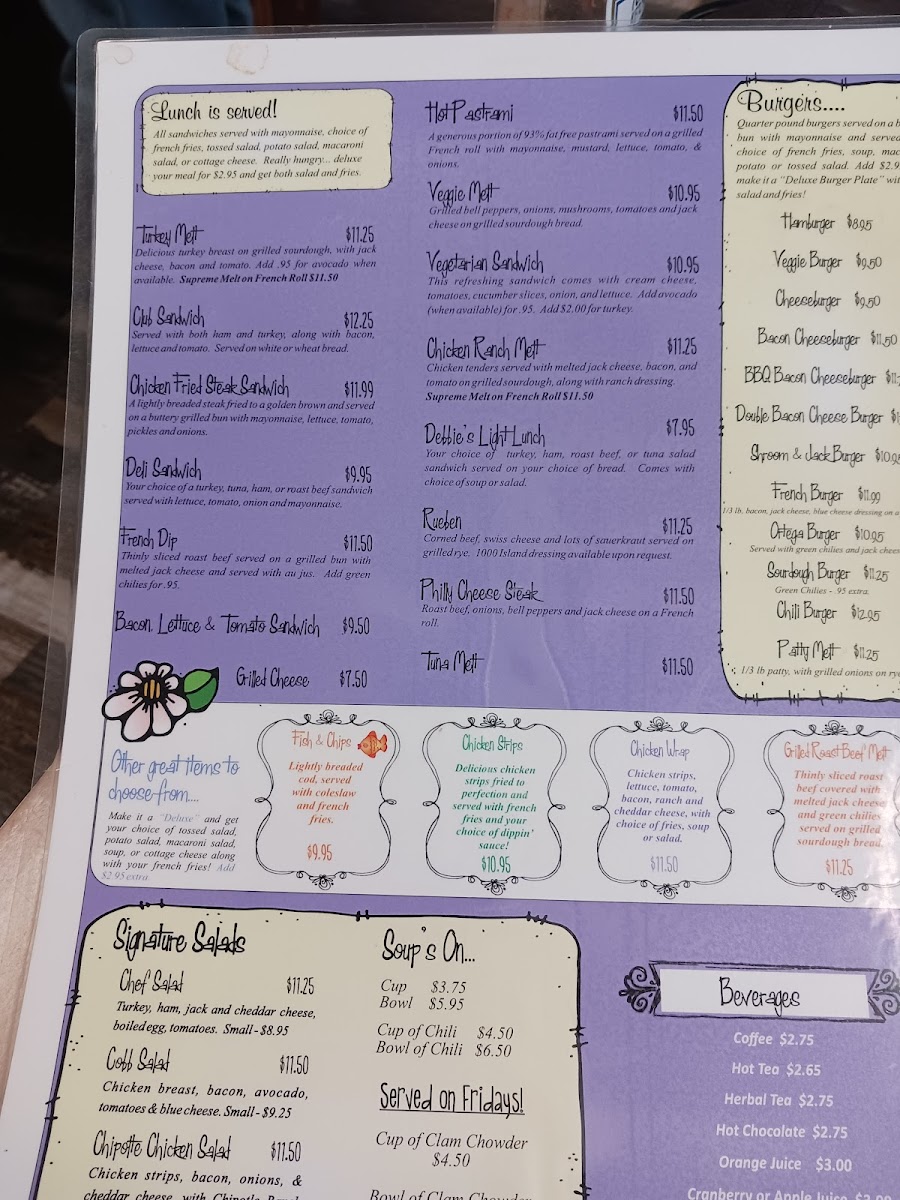 Lunch is served!
All sandwiches served with mayonnaise, choice of
french fries, tossed salad, potato salad, macaroni
salad, or cottage cheese. Really hungry... deluxe
your meal for $2.95 and get both salad and fries.
Turkey Melt $11.25
Delicious turkey breast on grilled sourdough, with jack
cheese, bacon and tomato. Add .95 for avocado when
available. Supreme Melt on French Roll $11.50
Club Sandwich $12.25
Served with both ham and turkey, along with bacon,
lettuce and tomato. Served on white or wheat bread.
Chicken Fried Steak Sandwich $11.99
A lightly breaded steak fried to a golden brown and served
on a buttery grilled bun with mayonnaise, lettuce, tomato,
pickles and onions.
Deli Sandwich $9.95
Your choice of a turkey, tuna, ham, or roast beef sandwich
served with lettuce, tomato, onion and mayonnaise.
French Dip $11.50
Thinly sliced roast beef served on a grilled bun with
melted jack cheese and served with au jus. Add green
chilies for .95.
Bacon, Lettuce & Tomato Sandwich $9.50
Grilled Cheese $7.50
Hot Pastrami $11.50
A generous portion of 93% fat free pastrami served on a grilled
French roll with mayonnaise, mustard, lettuce, tomato, &
onions.
Veggie Melt $10.95
Grilled bell peppers, onions, mushrooms, tomatoes and jack
cheese on grilled sourdough bread.
Vegetarian Sandwich $10.95
This refreshing sandwich comes with cream cheese,
tomatoes, cucumber slices, onion, and lettuce. Add avocado
(when available) for .95. Add $2.00 for turkey.
Chicken Ranch Melt $11.25
Chicken tenders served with melted jack cheese, bacon, and
tomato on grilled sourdough, along with ranch dressing.
Supreme Melt on French Roll $11.50
Debbie's Light Lunch $7.95
Your choice of turkey, ham, roast beef, or tuna salad
sandwich served on your choice of bread. Comes with
choice of soup or salad.
Rueben $11.25
Corned beef, swiss cheese and lots of sauerkraut served on
grilled rye. 1000 Island dressing available upon request.
Philly Cheese Steak $11.50
Roast beef, onions, bell peppers and jack cheese on a French
roll.
Tuna Melt $11.50
Burgers....
Quarter pound burgers served on a
bun with mayonnaise and served
choice of french fries, soup,
potato or tossed salad. Add $2.9
make it a "Deluxe Burger Plate"
salad and fries!
Hamburger $8.95
Veggie Burger $9.50
Cheeseburger $9.50
Bacon Cheeseburger $11.50
BBQ Bacon Cheeseburger
Double Bacon Cheese Burger
Shroom & Jack Burger $10.95
French Burger $11.99
1/3 lb, bacon, jack cheese, blue cheese dressing on
Ortega Burger $10.95
Served with green chilies and jack
Sourdough Burger $11.25
Green Chilies - .95 extra.
Chili Burger $12.95
Patty Melt $11.25
1/3 lb patty, with grilled onions on
Other great items to
choose from....
Make it a "Deluxe" and get
your choice of tossed salad,
potato salad, macaroni salad,
soup, or cottage cheese along
with your french fries! Add
$2.95 extra.
Fish & Chips
Lightly breaded
cod, served
with coleslaw
and french
fries.
$9.95
Chicken Strips
Delicious chicken
strips fried to
perfection and
served with french
fries and your
choice of dippin'
sauce!
$10.95
Chicken Wrap
Chicken strips,
lettuce, tomato,
bacon, ranch and
cheddar cheese, with
choice of fries, soup
or salad.
$11.50
Grilled Roast Beef Melt
Thinly sliced roast
beef covered with
melted jack cheese
and green chilies
served on grilled
sourdough bread.
$11.25
Signature Salads
Chef Salad $11.25
Turkey, ham, jack and cheddar cheese,
boiled egg, tomatoes. Small - $8.95
Cobb Salad $11.50
Chicken breast, bacon, avocado,
tomatoes & blue cheese. Small - $9.25
Chipotle Chicken Salad $11.50
Chicken strips, bacon, onions, &
cheddar cheese, with Chipotle
Soup's On...
Cup $3.75
Bowl $5.95
Cup of Chili $4.50
Bowl of Chili $6.50
Served on Fridays!
Cup of Clam Chowder
$4.50
Bowl of Clam Chowder
Beverages
Coffee $2.75
Hot Tea $2.65
Herbal Tea $2.75
Hot Chocolate $2.75
Orange Juice $3.00
Cranberry or Apple Juice